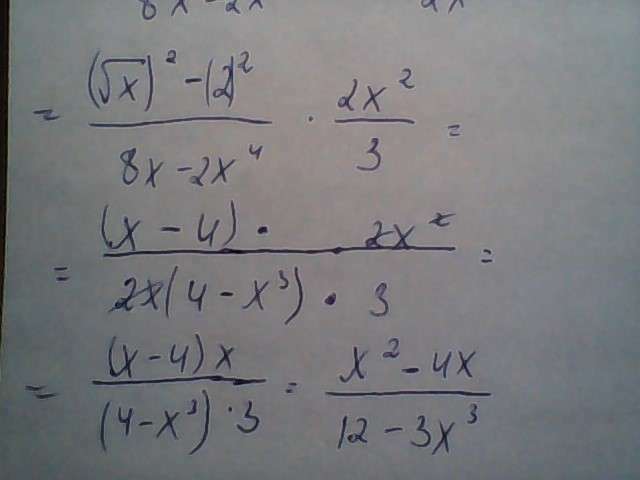 8x - 2x 2x
= ((√x)² - (2)²) / (8x - 2x⁴) · 2x² / 3 =
= (x - 4) · 2x² / (2x(4 - x³) · 3) =
= (x - 4)x / ((4 - x³) · 3) = (x² - 4x) / (12 - 3x³)